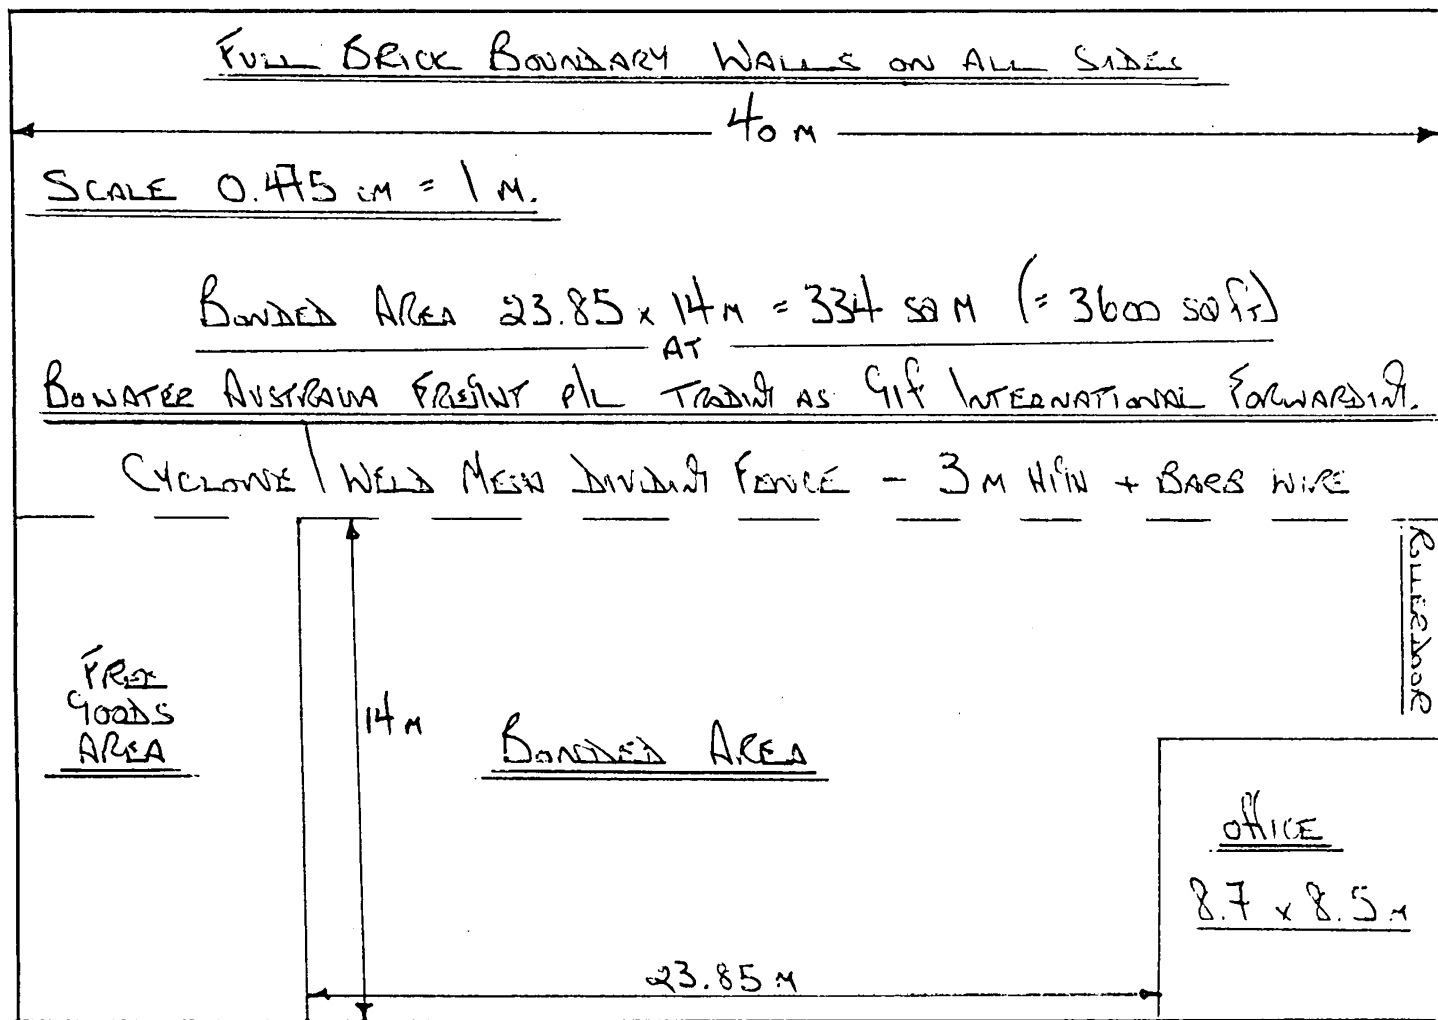 FULL BRICK BOUNDARY WALLS ON ALL SIDES
40 M
SCALE 0.475 CM = 1 M.
BONDED AREA 23.85 x 14 M = 334 SQ M (= 3600 SQ FT)
AT
BOWATER AUSTRALIA FREIGHT P/L TRADING AS GIF INTERNATIONAL FORWARDING.
CYCLONE / WELD MESH DIVIDING FENCE - 3 M HIGH + BARB WIRE
ROLLERDOOR
FREE
GOODS
AREA
14 M
BONDED AREA
OFFICE
8.7 x 8.5 M
23.85 M